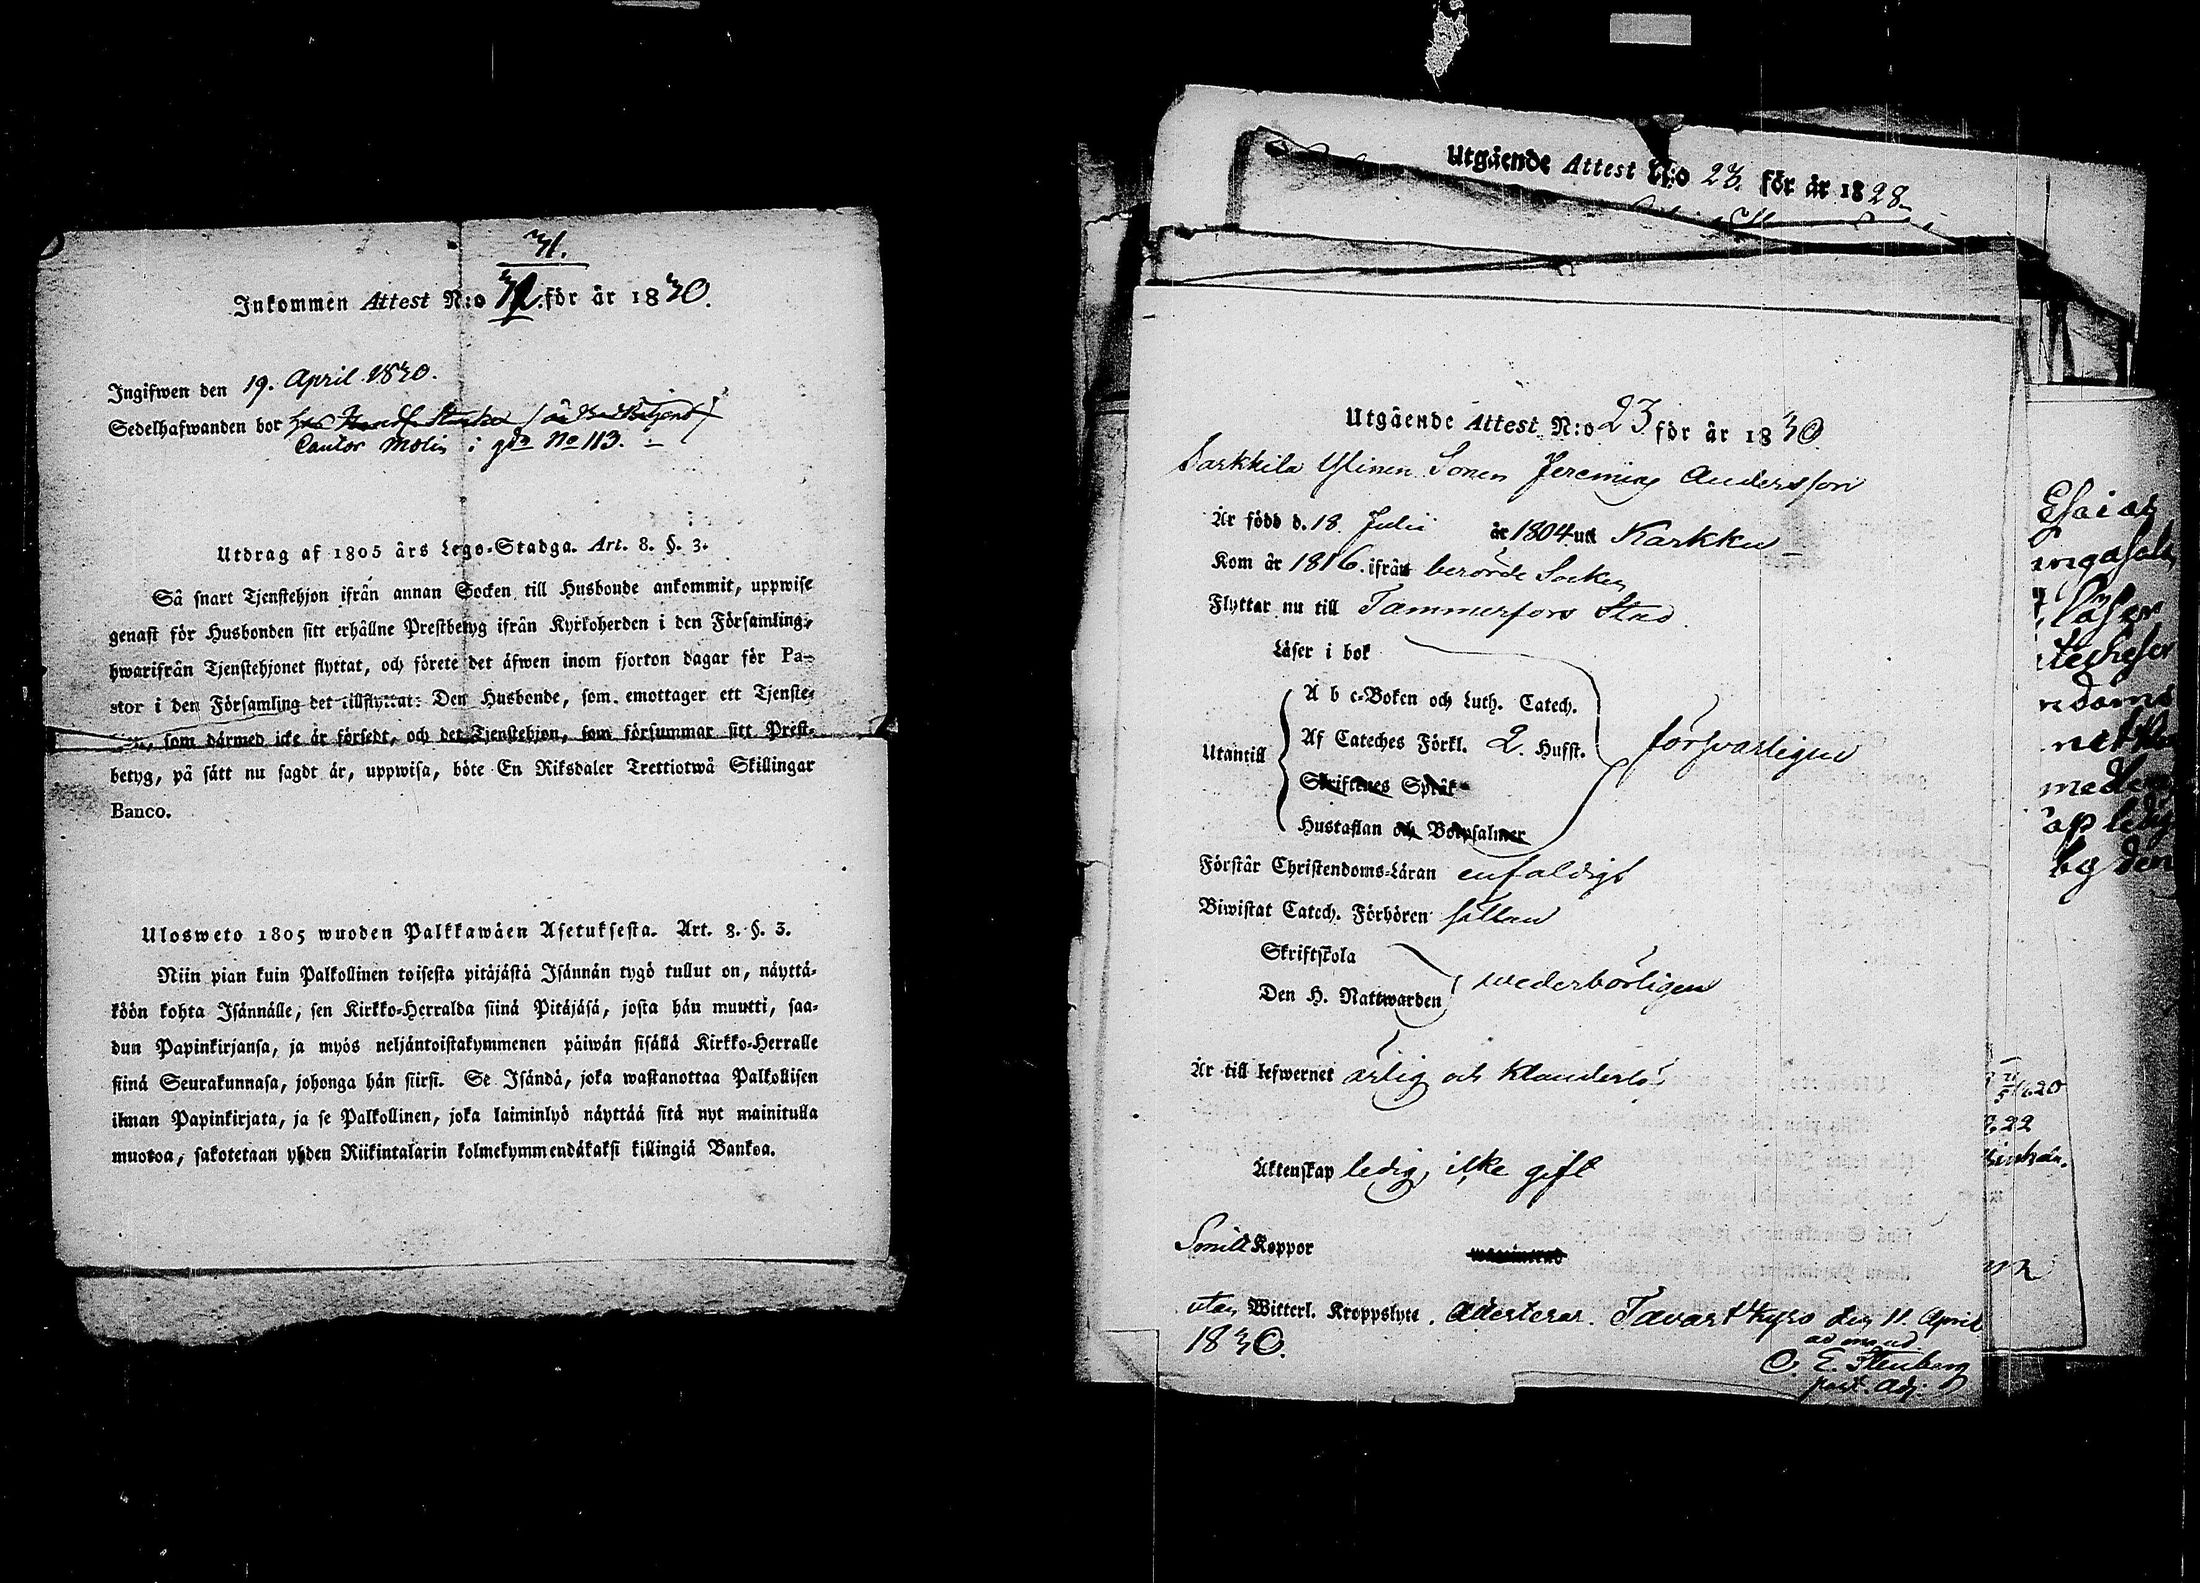 31.
Inkommen Attest N:o 32. för år 1830.
Ingifwen den 19. April 1830.
Sedelhafwanden bor hos
Cantor Molin i gån No 113. –
Utdrag af 1805 års Lego-Stadga. Art. 8. §. 3.
Så snart Tjenstehjon ifrån annan Socken till Husbonde ankommit, uppwise
genast för Husbonden sitt erhållne Prestbetyg ifrån Kyrkoherden i den Församling,
hwarifrån Tjenstehjonet flyttat, och förete det äfwen inom fjorton dagar för Pa-
stor i den Församling det tillflyttat: Den Husbonde, som emottager ett Tjenste-
som därmed icke är försedt, och det Tjenstehjon, som försummar sitt Prest-
betyg, på sätt nu sagdt är, uppwisa, böte En Riksdaler Trettiotwå Skillingar
Banco.
Ulosweto 1805 wuoden Palkkawäen Asetuksesta. Art. 8. §. 3.
Niin pian kuin Palkollinen toisesta pitäjästä Isännän tygö tullut on, näyttä-
köön kohta Isännälle, sen Kirkko-Herralda siinä Pitäjäsä, josta hän muutti, saa-
dun Papinkirjansa, ja myös neljäntoistakymmenen päiwän sisällä Kirkko-Herralle
siinä Seurakunnasa, johonga hän siirsi. Se Isändä, joka wastanottaa Palkollisen
ilman Papinkirjata, ja se Palkollinen, joka laiminlyö näyttää sitä nyt mainitulla
muotoa, sakotetaan yhden Riikintalarin kolmekymmendäkaksi killingiä Bankoa.
Utgående Attest N:o 23. för år 1828
Utgående Attest N:o 23 för år 1830.
Sarkkila Ylinen Sonen Jeremias Andersson
Är född d. 18 Julii år 1804 uti Karkku –
Kom år 1816. ifrån berörde Socken
Flyttar nu till Tammerfors Stad.
Läser i bok
A b c-Boken och Luth. Catech.
Utantill Af Cateches Förkl. 2. Hufst. försvarligen
Skriftenes Språk
Hustaflan och Botpsalmer
Förstår Christendoms-Läran enfaldigt
Biwistat Catech. Förhören sällan
Skriftskola
Den H. Nattwarden wederbörligen
Är till lefwernet ärlig och klanderlös
Äktenskap ledig, icke gift
Smitt Koppor
utan Witterl. Kroppslyte. Attesterar. Tavastkyro den 11. April
1830.
ad mand.
C. E. Stenberg
past. Adj:
Esaias
Läser